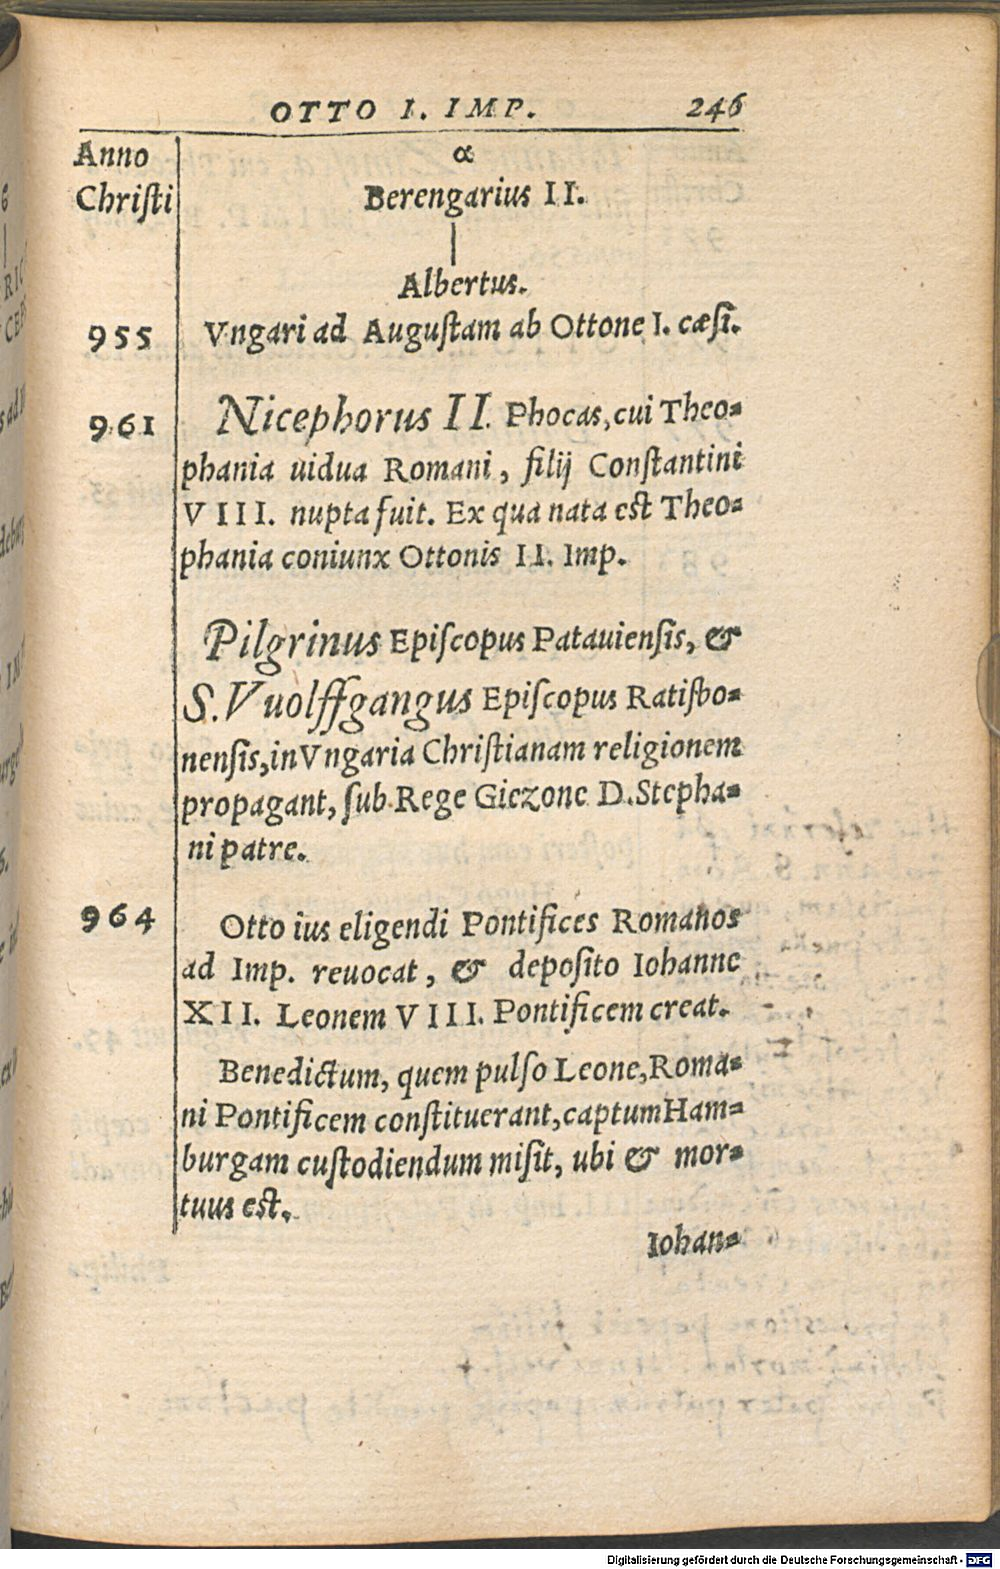 OTTO I. IMP. 246
Anno
Christi
α
Berengarius II.
Albertus.
955 Vngari ad Auguſtam ab Ottone I. cæſi.
961 Nicephorus II. Phocas, cui Theo=
phania uidua Romani, filij Conſtantini
VIII. nupta fuit. Ex qua nata eſt Theo=
phania coniunx Ottonis II. Imp.
Pilgrinus Epiſcopus Patauienſis, &
S. Vuolffgangus Epiſcopus Ratiſbo=
nenſis, in Vngaria Chriſtianam religionem
propagant, ſub Rege Giezone D. Stepha=
ni patre.
964 Otto ius eligendi Pontifices Romanos
ad Imp. reuocat, & depoſito Iohanne
XII. Leonem VIII. Pontificem creat.
Benedictum, quem pulſo Leone, Roma=
ni Pontificem conſtituerant, captum Ham=
burgam cuſtodiendum miſit, ubi & mor=
tuus eſt.
Iohan=
Digitalisierung gefördert durch die Deutsche Forschungsgemeinschaft - DFG